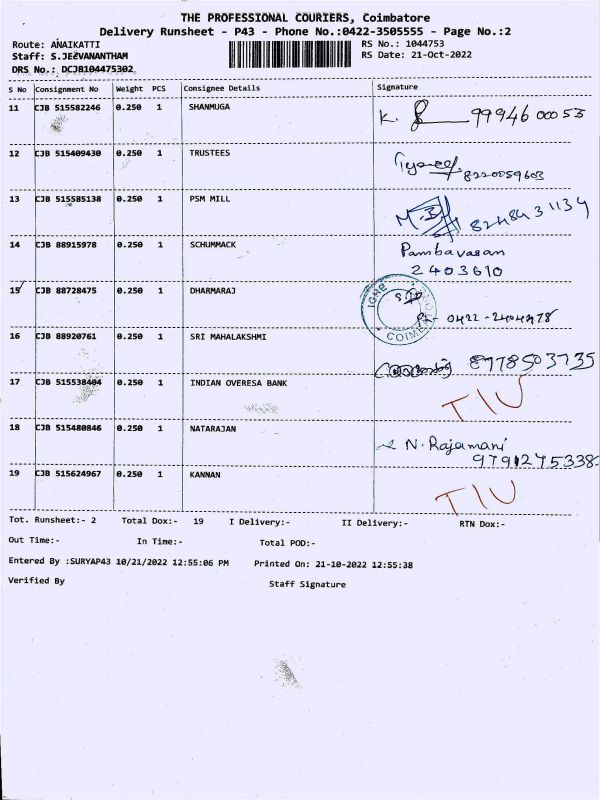 THE PROFESSIONAL COURIERS, Coimbatore
Delivery Runsheet - P43 - Phone No.:0422-3505555 - Page No.:2
Route: ANAIKATTI RS No.: 1044753
Staff: S.JEEVANANTHAM RS Date: 21-Oct-2022
DRS No.: DCJB104475302
S No Consignment No Weight PCS Consignee Details Signature
11 CJB 515582246 0.250 1 SHANMUGA K. 99946 00053
12 CJB 515409430 0.250 1 TRUSTEES 8220059603
13 CJB 515585138 0.250 1 PSM MILL 8248431134
14 CJB 88915978 0.250 1 SCHUMMACK Pambavasan
2403610
15 CJB 88728475 0.250 1 DHARMARAJ 0422-2404478
16 CJB 88920761 0.250 1 SRI MAHALAKSHMI 8778503735
17 CJB 515538404 0.250 1 INDIAN OVERESA BANK TIU
18 CJB 515480846 0.250 1 NATARAJAN N. Rajamani
9791275338
19 CJB 515624967 0.250 1 KANNAN TIU
Tot. Runsheet:- 2 Total Dox:- 19 I Delivery:- II Delivery:- RTN Dox:-
Out Time:- In Time:- Total POD:-
Entered By :SURYAP43 10/21/2022 12:55:06 PM Printed On: 21-10-2022 12:55:38
Verified By Staff Signature